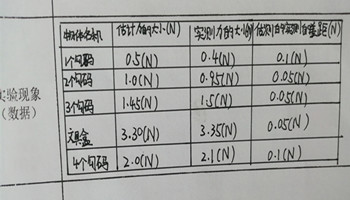 物体名称 估计力的大小(N) 实测力的大小(N) 估测值与实测值的差距(N)
1个勾码 0.5(N) 0.4(N) 0.1(N)
2个勾码 1.0(N) 0.95(N) 0.05(N)
实验现象
3个勾码 1.45(N) 1.5(N) 0.05(N)
（数据）
文具盒 3.30(N) 3.35(N) 0.05(N)
4个勾码 2.0(N) 2.1(N) 0.1(N)